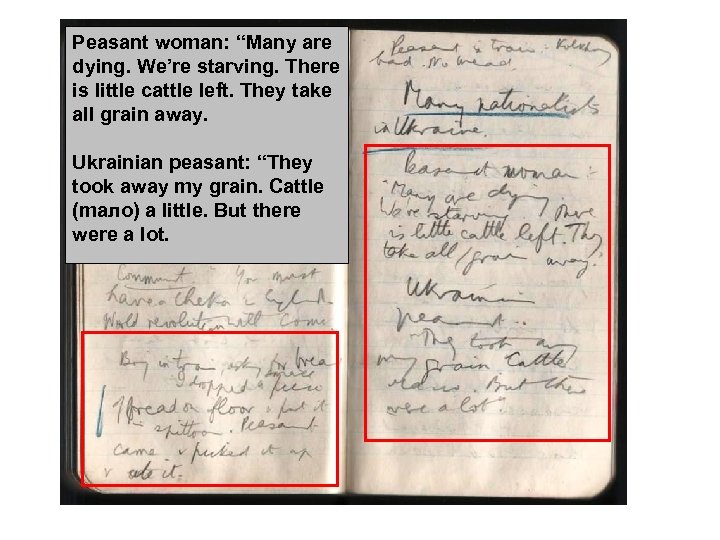 Peasant woman: “Many are
dying. We’re starving. There
is little cattle left. They take
all grain away.
Ukrainian peasant: “They
took away my grain. Cattle
(mало) a little. But there
were a lot.
Communist: "You must
have a Cheka in England
World revolution will come.
Boy in train asking for bread
dropped a piece
of bread on floor & put it
in spittoon. Peasant
came & picked it up
& ate it.
Peasant in train: Kolkhoz
bad. No bread.
Many nationalists
in Ukraine.
Peasant woman:-
"Many are dying.
We're starving. There
is little cattle left. They
take all grain away."
Ukrainian
peasant:
"They took away
my grain. Cattle
But there
were a lot".